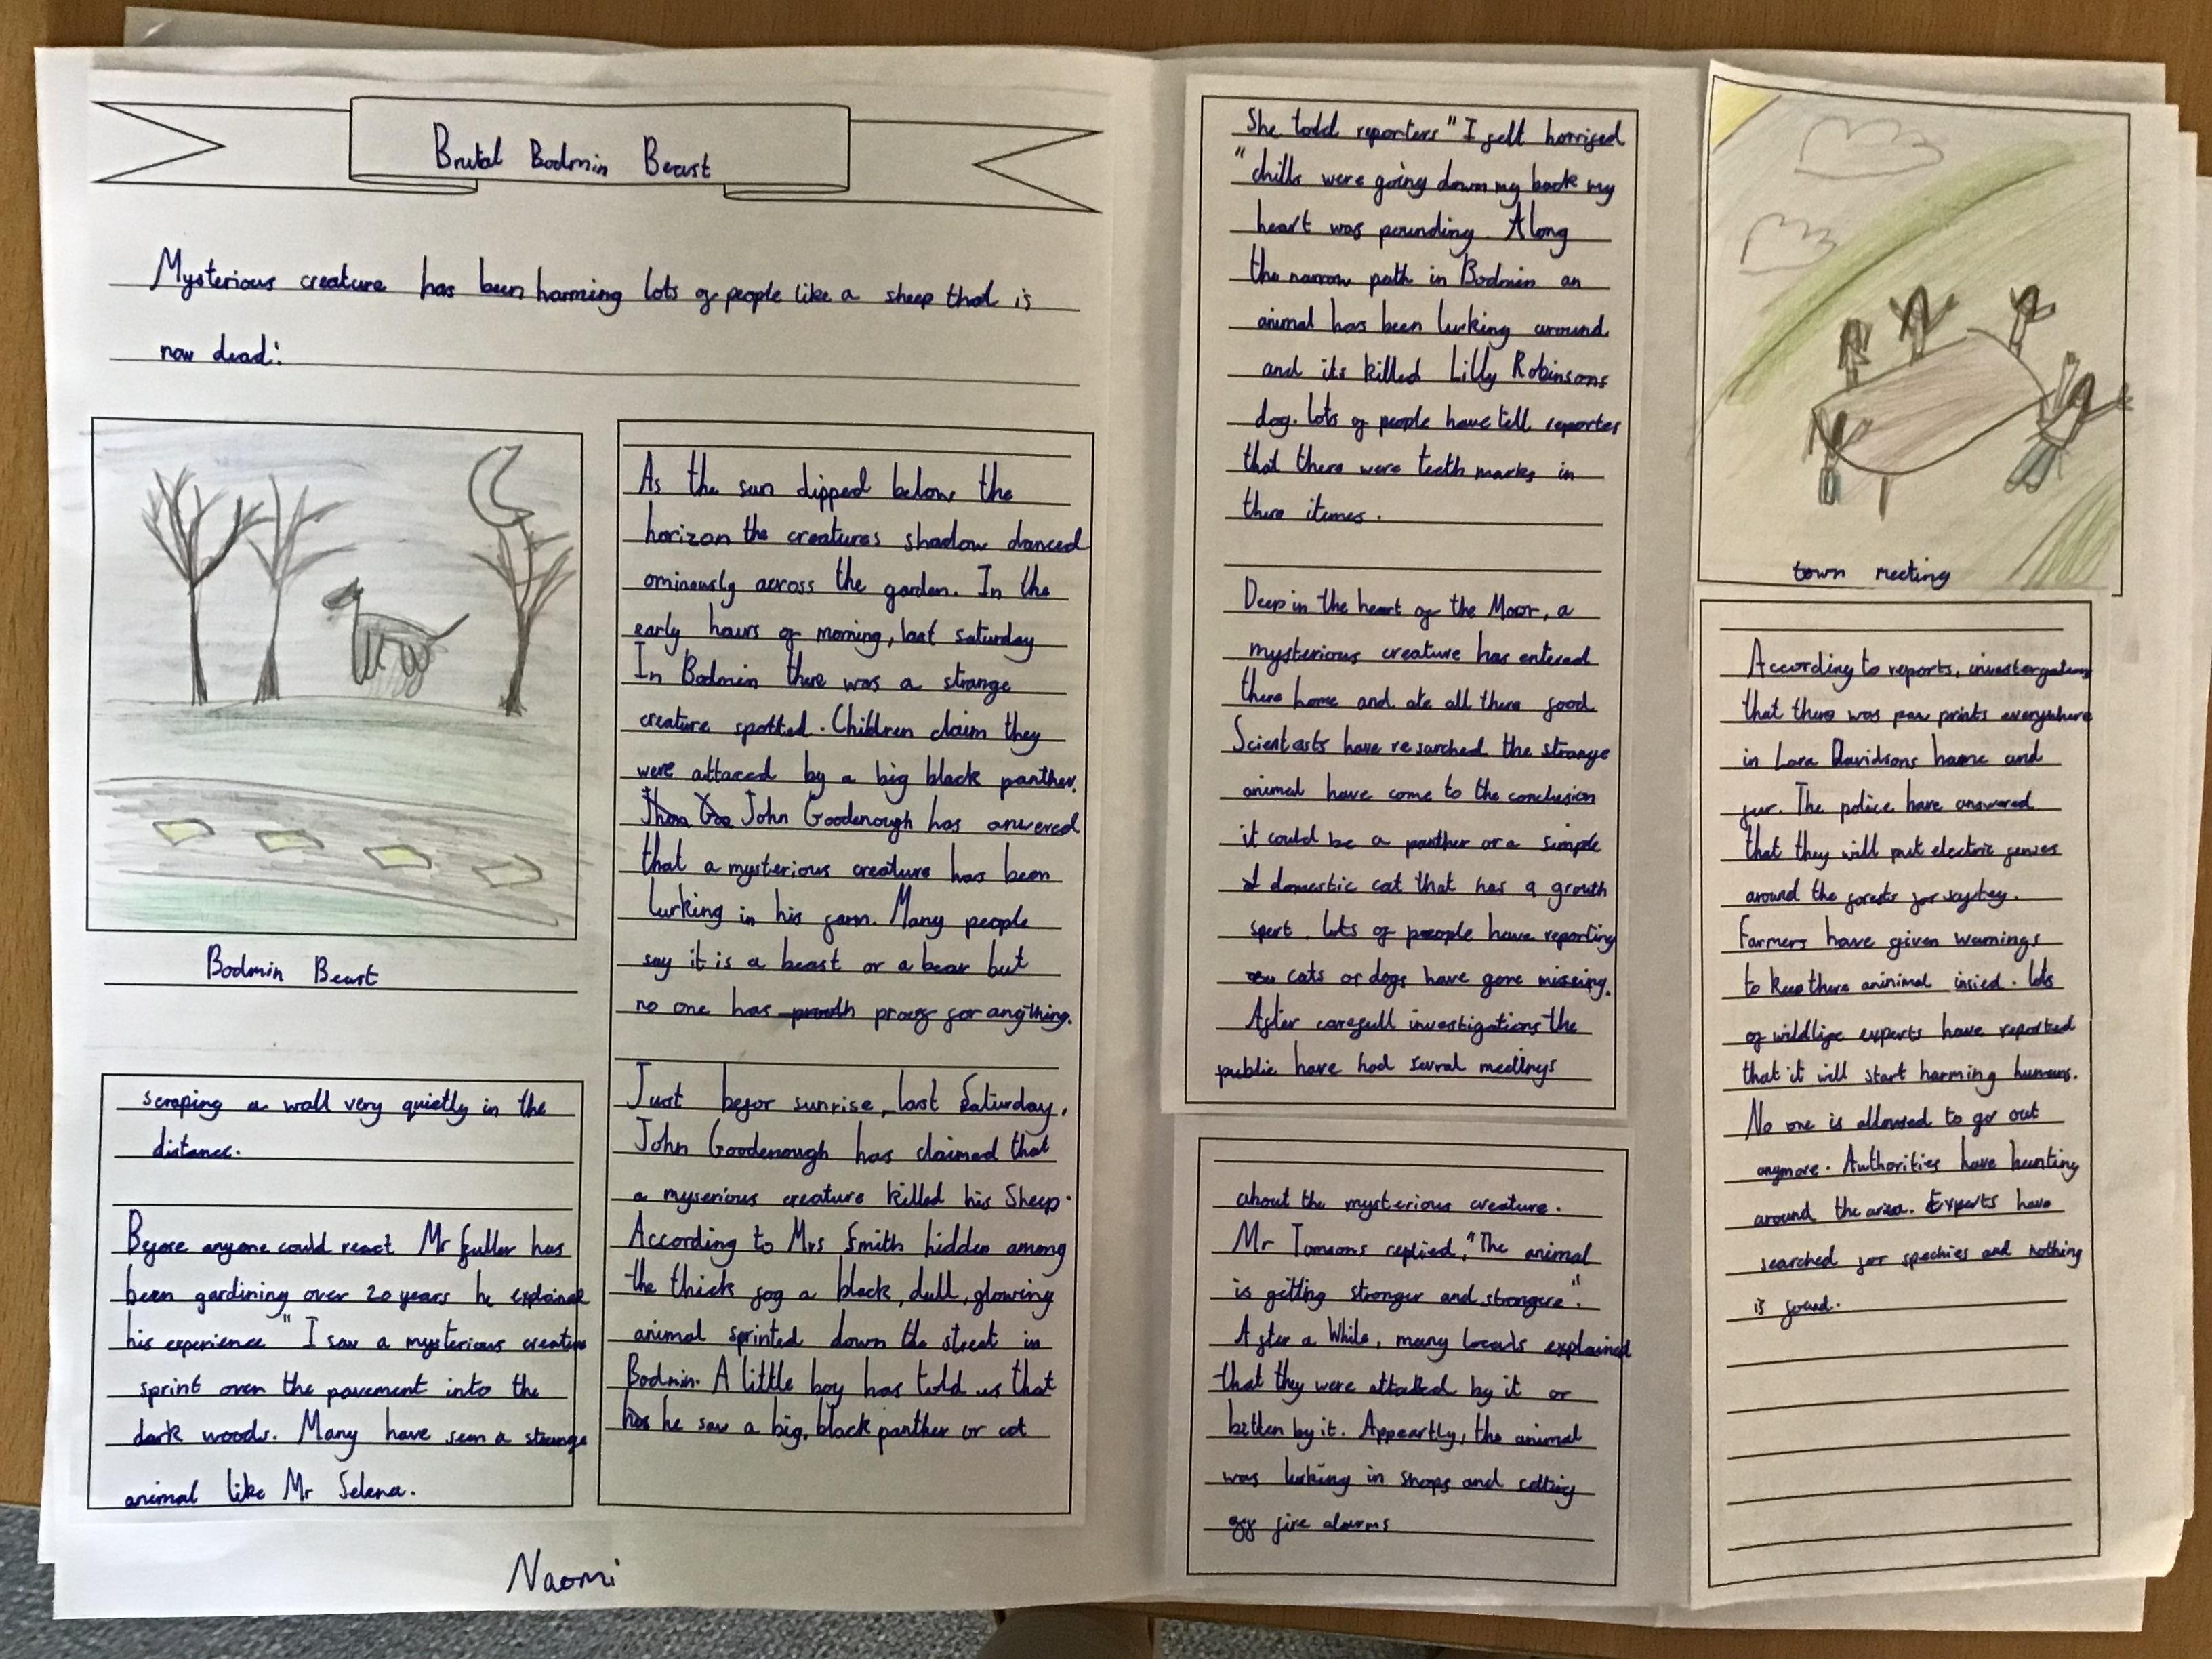 Brutal Bodmin Beast
Mysterious creature has been harming lots of people like a sheep that is
now dead!
Bodmin Beast
As the sun dipped below the
horizon the creatures shadow danced
ominously across the garden. In the
early hours of morning, last saturday
In Bodmin there was a strange
creature spotted. Children claim they
were attaced by a big black panther.
John Goodenough has anwered
that a mysterious creature has been
lurking in his farm. Many people
say it is a beast or a bear but
no one has proof for anything.
Just befor sunrise, last Saturday,
John Goodenough has claimed that
a myserious creature killed his Sheep.
According to Mrs Smith hidden among
the thick fog a black, dull, glowing
animal sprinted down the street in
Bodmin. A little boy has told us that
he saw a big, black panther or cat
scraping a wall very quietly in the
distance.
Before anyone could react Mr fuller has
been gardining over 20 years he explained
his experience " I saw a mysterious creature
sprint over the pavement into the
dark woods. Many have seen a strange
animal like Mr Selena.
Naomi
She todd reporters " I felt horrified
" chills were going down my back my
heart was pounding. Along
the narrow path in Bodmin an
animal has been lurking around
and its killed Lilly Robinsons
dog. lots of people have tell reporter
that there were teeth marks in
there itemes.
Deep in the heart of the Moor, a
mysterious creature has entered
there home and ate all there food
Scientests have resarched the strange
animal have come to the conclusion
it could be a panther or a simple
domestic cat that has a growth
spert. lots of people have reporting
cats or dogs have gone missing.
After carefull investigations the
public have had sevral meetings
about the mysterious creature.
Mr Tomsons replied, "The animal
is getting stronger and strongere".
After a While, many locals explained
that they were attacked by it or
bitten by it. Appeartly, the animal
was lurking in shops and setting
off fire alarms
town meeting
According to reports, investergations
that there was paw prints everywhere
in Lara Davidsons home and
fur. The police have answered
that they will put electric fences
around the forests for saftey.
Farmers have given warnings
to keep there aninimal insied. lots
of wildlife experts have reported
that it will start harming humans.
No one is allowed to go out
anymore. Authorities have hunting
around the area. Experts have
searched for spechies and nothing
is found.